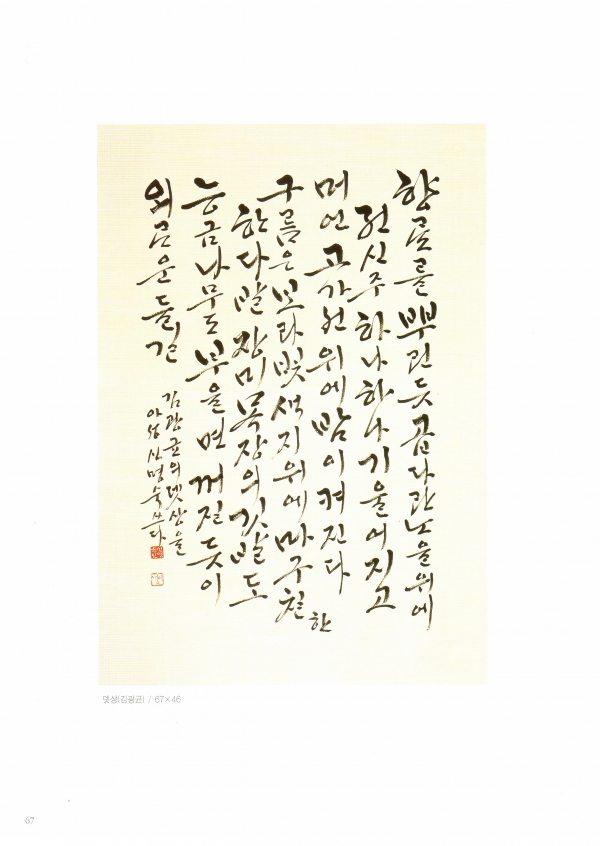 향료를 뿌린듯 곱다란 노을 위에
전신주 하나하나 기울어지고
머언 고가선 위에 밤이 켜진다
구름은 보라빛 색지 위에 마구 칠한
한다발 장미 목장의 깃발도
능금나무도 부을면 꺼질듯이
외로운 들길
김광균의 뎃상을
신명숙 쓰다
뎃상(김광균) / 67×46
67